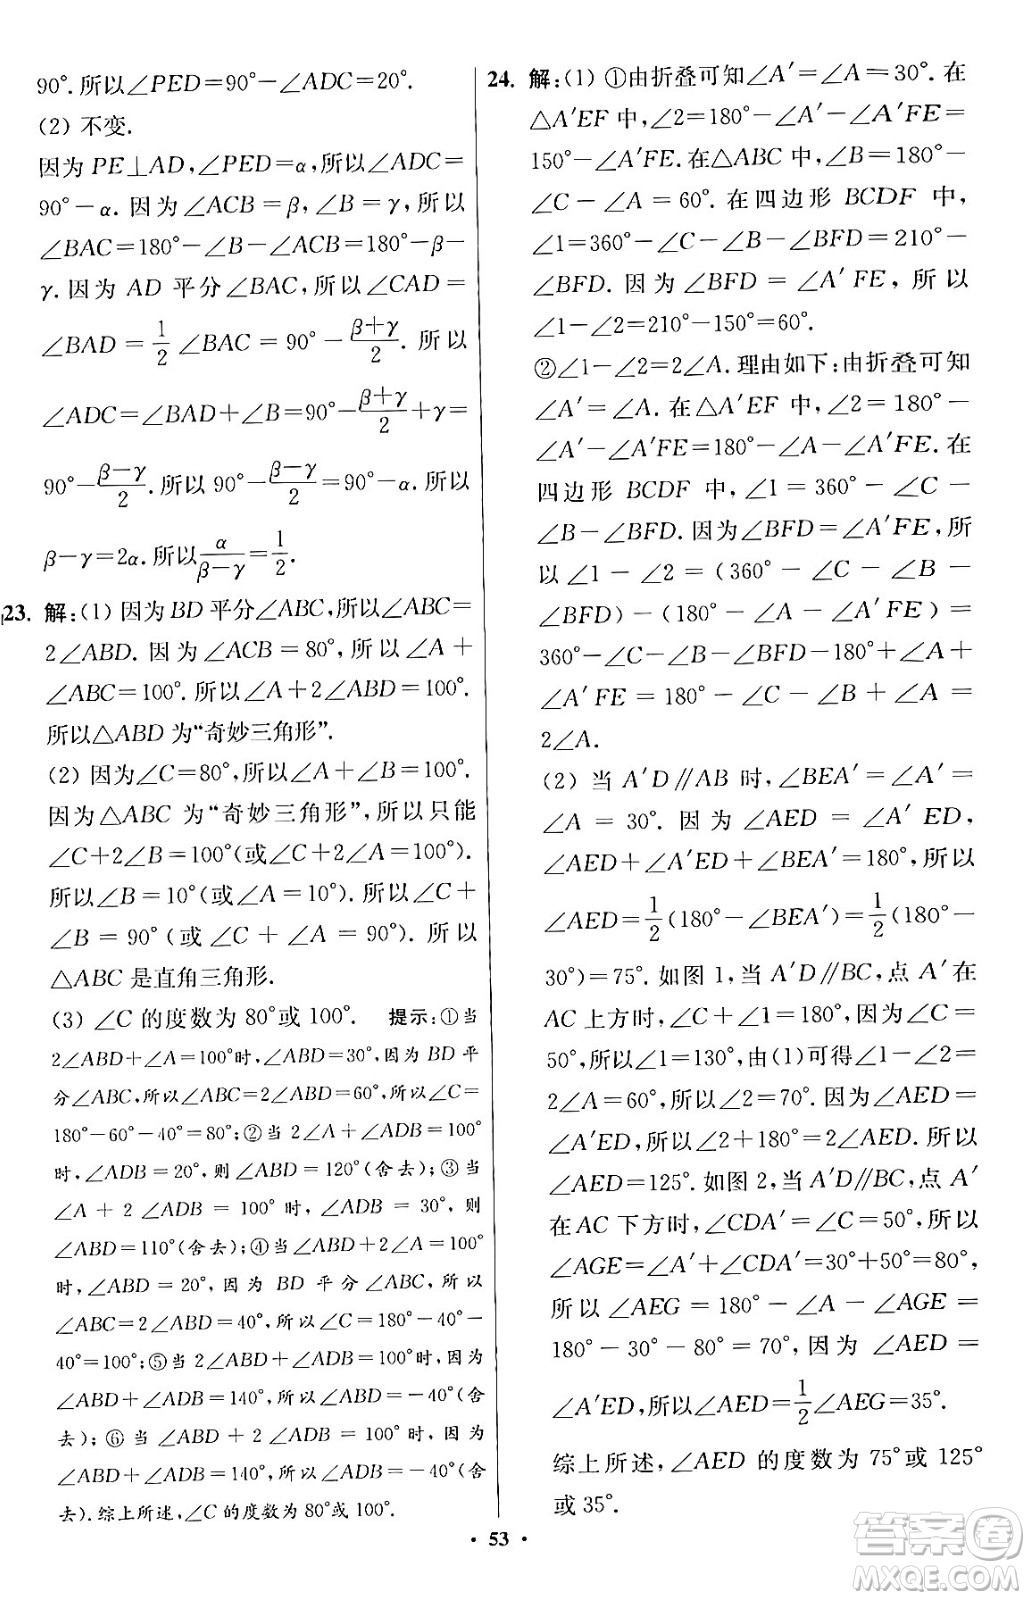 90°.所以∠PED=90°-∠ADC=20°.
(2) 不变.
因为 PE⊥AD,∠PED=α,所以∠ADC=
90°-α.因为∠ACB=β,∠B=γ,所以
∠BAC=180°-∠B-∠ACB=180°-β-
γ.因为 AD 平分∠BAC,所以∠CAD=
∠BAD=1/2∠BAC=90°-(β+γ)/2.所以
∠ADC=∠BAD+∠B=90°-(β+γ)/2+γ=
90°-(β-γ)/2.所以 90°-(β-γ)/2=90°-α.所以
β-γ=2α.所以α/(β-γ)=1/2.
23. 解:(1) 因为BD平分∠ABC,所以∠ABC=
2∠ABD.因为∠ACB=80°,所以∠A+
∠ABC=100°.所以∠A+2∠ABD=100°.
所以△ABD为“奇妙三角形”.
(2) 因为∠C=80°,所以∠A+∠B=100°.
因为△ABC 为“奇妙三角形”,所以只能
∠C+2∠B=100°(或∠C+2∠A=100°).
所以∠B=10°(或∠A=10°).所以∠C+
∠B=90°(或∠C+∠A=90°).所以
△ABC是直角三角形.
(3) ∠C的度数为80°或100°. 提示:①当
2∠ABD+∠A=100°时,∠ABD=30°,因为 BD 平
分∠ABC,所以∠ABC=2∠ABD=60°,所以∠C=
180°-60°-40°=80°;②当 2∠A+∠ABD=100°
时,∠ADB=20°,则∠ABD=120°(舍去);③当
∠A+2∠ADB=100°时,∠ADB=30°,则
∠ABD=110°(舍去);④当∠ADB+2∠ABD=100°
时,∠ABD=20°,因为 BD 平分∠ABC,所以
∠ABC=2∠ABD=40°,所以∠C=180°-40°-
40°=100°;⑤当 2∠ABD+∠ADB=100°时,因为
∠ABD+∠ADB=140°,所以∠ABD=-40°(舍
去);⑥当∠ABD+2∠ADB=100°时,因为
∠ABD+∠ADB=140°,所以∠ADB=-40°(舍
去).综上所述,∠C的度数为80°或100°.
24. 解:(1) ①由折叠可知∠A′=∠A=30°.在
△A′EF中,∠2=180°-∠A′-∠A′FE=
150°-∠A′FE.在△ABC中,∠B=180°-
∠C-∠A=60°.在四边形 BCDF 中,
∠1=360°-∠C-∠B-∠BFD=210°-
∠BFD.因为∠BFD=∠A′FE,所以
∠1-∠2=210°-150°=60°.
②∠1-∠2=2∠A.理由如下:由折叠可知
∠A′=∠A.在△A′EF中,∠2=180°-
∠A′-∠A′FE=180°-∠A-∠A′FE.在
四边形 BCDF 中,∠1=360°-∠C-
∠B-∠BFD.因为∠BFD=∠A′FE,所
以∠1-∠2=(360°-∠C-∠B-
∠BFD)-(180°-∠A-∠A′FE)=
360°-∠C-∠B-∠BFD-180°+∠A+
∠A′FE=180°-∠C-∠B+∠A=
2∠A.
(2) 当 A′D∥AB 时,∠BEA′=∠A′=
∠A=30°.因为∠AED=∠A′ED,
∠AED+∠A′ED+∠BEA′=180°,所以
∠AED=1/2(180°-∠BEA′)=1/2(180°-
30°)=75°.如图1,当A′D∥BC,点A′在
AC上方时,∠C+∠1=180°,因为∠C=
50°,所以∠1=130°,由(1)可得∠1-∠2=
2∠A=60°,所以∠2=70°.因为∠AED=
∠A′ED,所以∠2+180°=2∠AED.所以
∠AED=125°.如图2,当A′D∥BC,点A′
在AC下方时,∠CDA′=∠C=50°,所以
∠AGE=∠A′+∠CDA′=30°+50°=80°,
所以∠AEG=180°-∠A-∠AGE=
180°-30°-80°=70°,因为∠AED=
∠A′ED,所以∠AED=1/2∠AEG=35°.
综上所述,∠AED的度数为75°或125°
或35°.
· 53 ·
答案圈
MXQE.COM